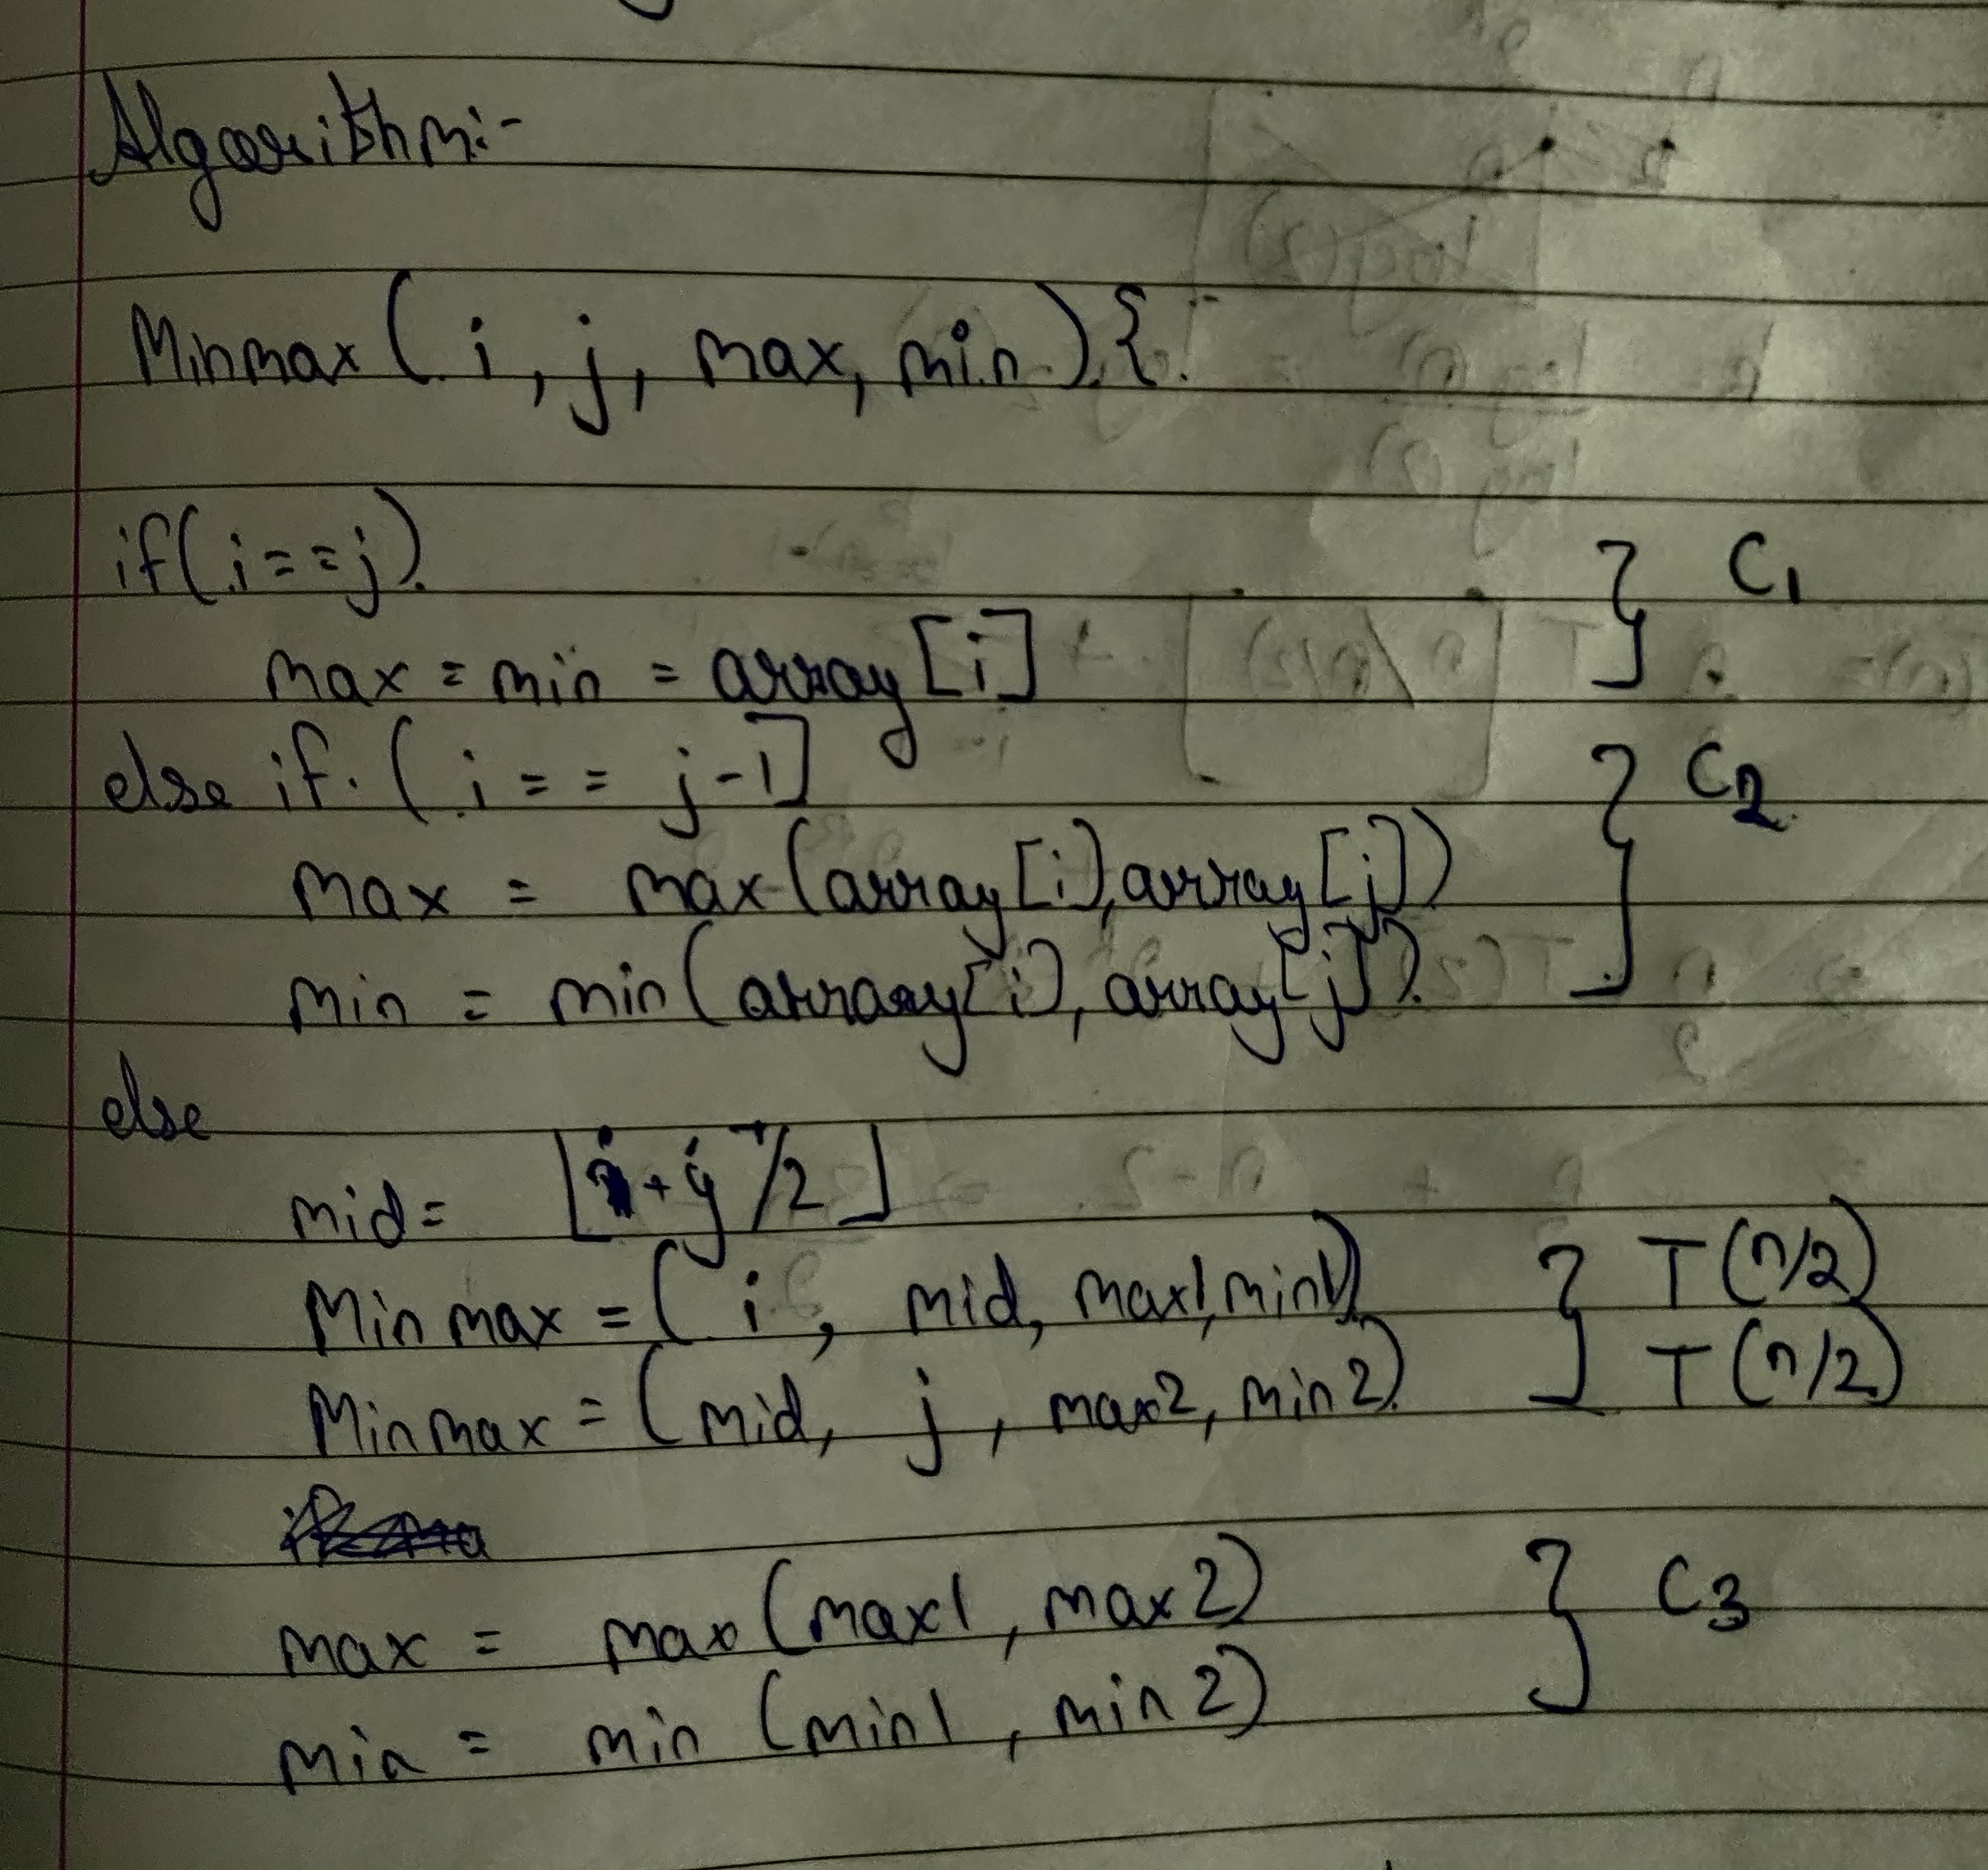 Algorithm:-
Minmax ( i, j, max, min ) {
if ( i == j ) } C1
max = min = array [i]
else if ( i == j-1] } C2
max = max (array [i], array [j])
min = min (array [i], array [j])
else
mid = ⌊i+j/2⌋
Minmax = ( i, mid, max1, min1) } T(n/2)
Minmax = ( mid, j, max2, min2) T(n/2)
max = max (max1, max2) } C3
min = min (min1, min2)